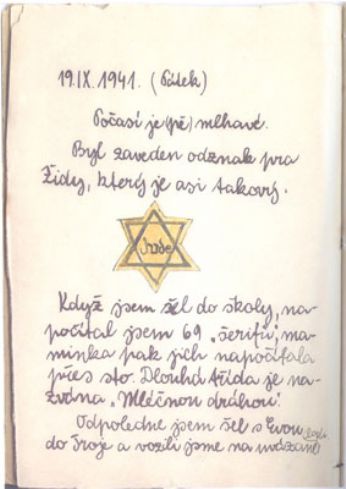 19.IX.1941. (Pátek)
Počasí je (pě) mlhavé.
Byl zaveden odznak pro
Židy, který je asi takový.
Jude
Když jsem šel do školy, na-
počítal jsem 69 „šerifů“, ma-
minka pak jich napočítala
přes sto. Dlouhá třída je na-
zvána „Mléčnou dráhou“.
Odpoledne jsem šel s Evou
do Troje a vozili jsme na